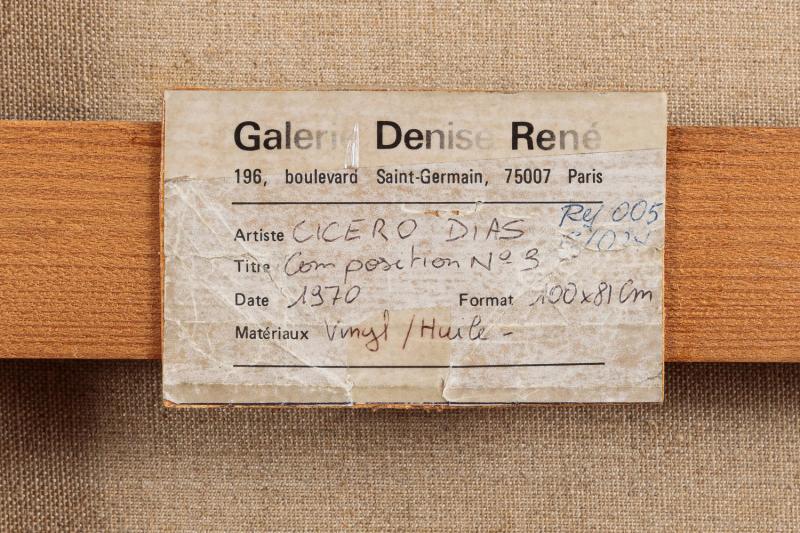 Galerie Denise René
196, boulevard Saint-Germain, 75007 Paris
Ref 005
Artiste CICERO DIAS
Titre Composition Nº 3
Date 1970 Format 100x81 Cm
Matériaux Vinyl / Huile -